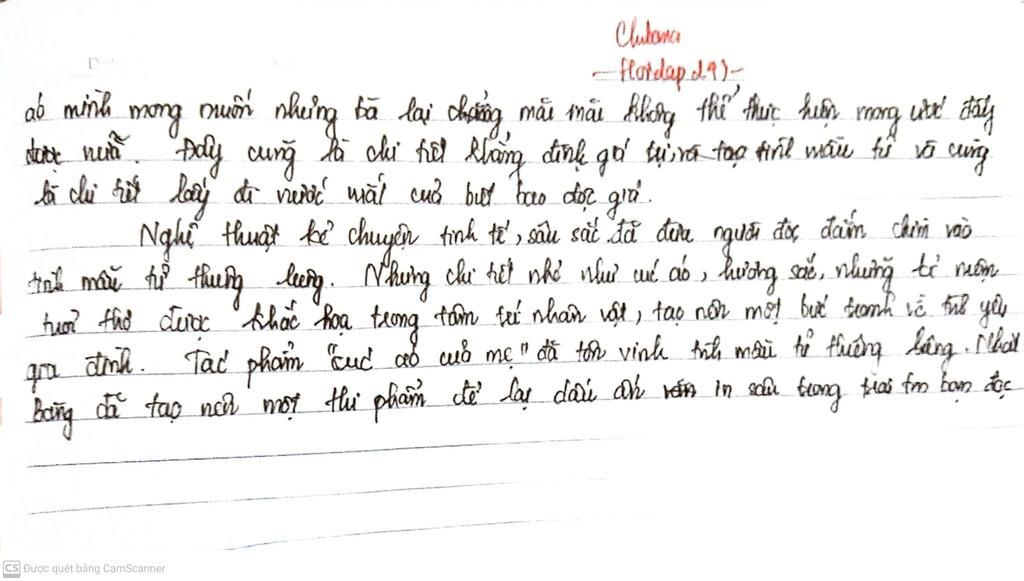 áo mình mong muốn nhưng bà lại chẳng mãi mãi không thể thực hiện mong ước đấy
được nữa. Đây cũng là chi tiết khẳng định giá trị, tạo tình mẫu tử và cũng
là chi tiết lấy đi nước mắt của biết bao độc giả.
Nghệ thuật kể chuyện tinh tế, sâu sắc đã đưa người đọc đắm chìm vào
tình mẫu tử thiêng liêng. Nhưng chi tiết nhỏ như cúc áo, hương sắc, những kỉ niệm
tuổi thơ được khắc hoạ trong tâm trí nhân vật, tạo nên một bức tranh về tình yêu
gia đình. Tác phẩm "cúc áo của mẹ" đã tôn vinh tình mẫu tử thiêng liêng. Nhat
Băng đã tạo nên một thi phẩm để lại dấu ấn in sâu trong trái tim bạn đọc
CS Được quét bằng CamScanner